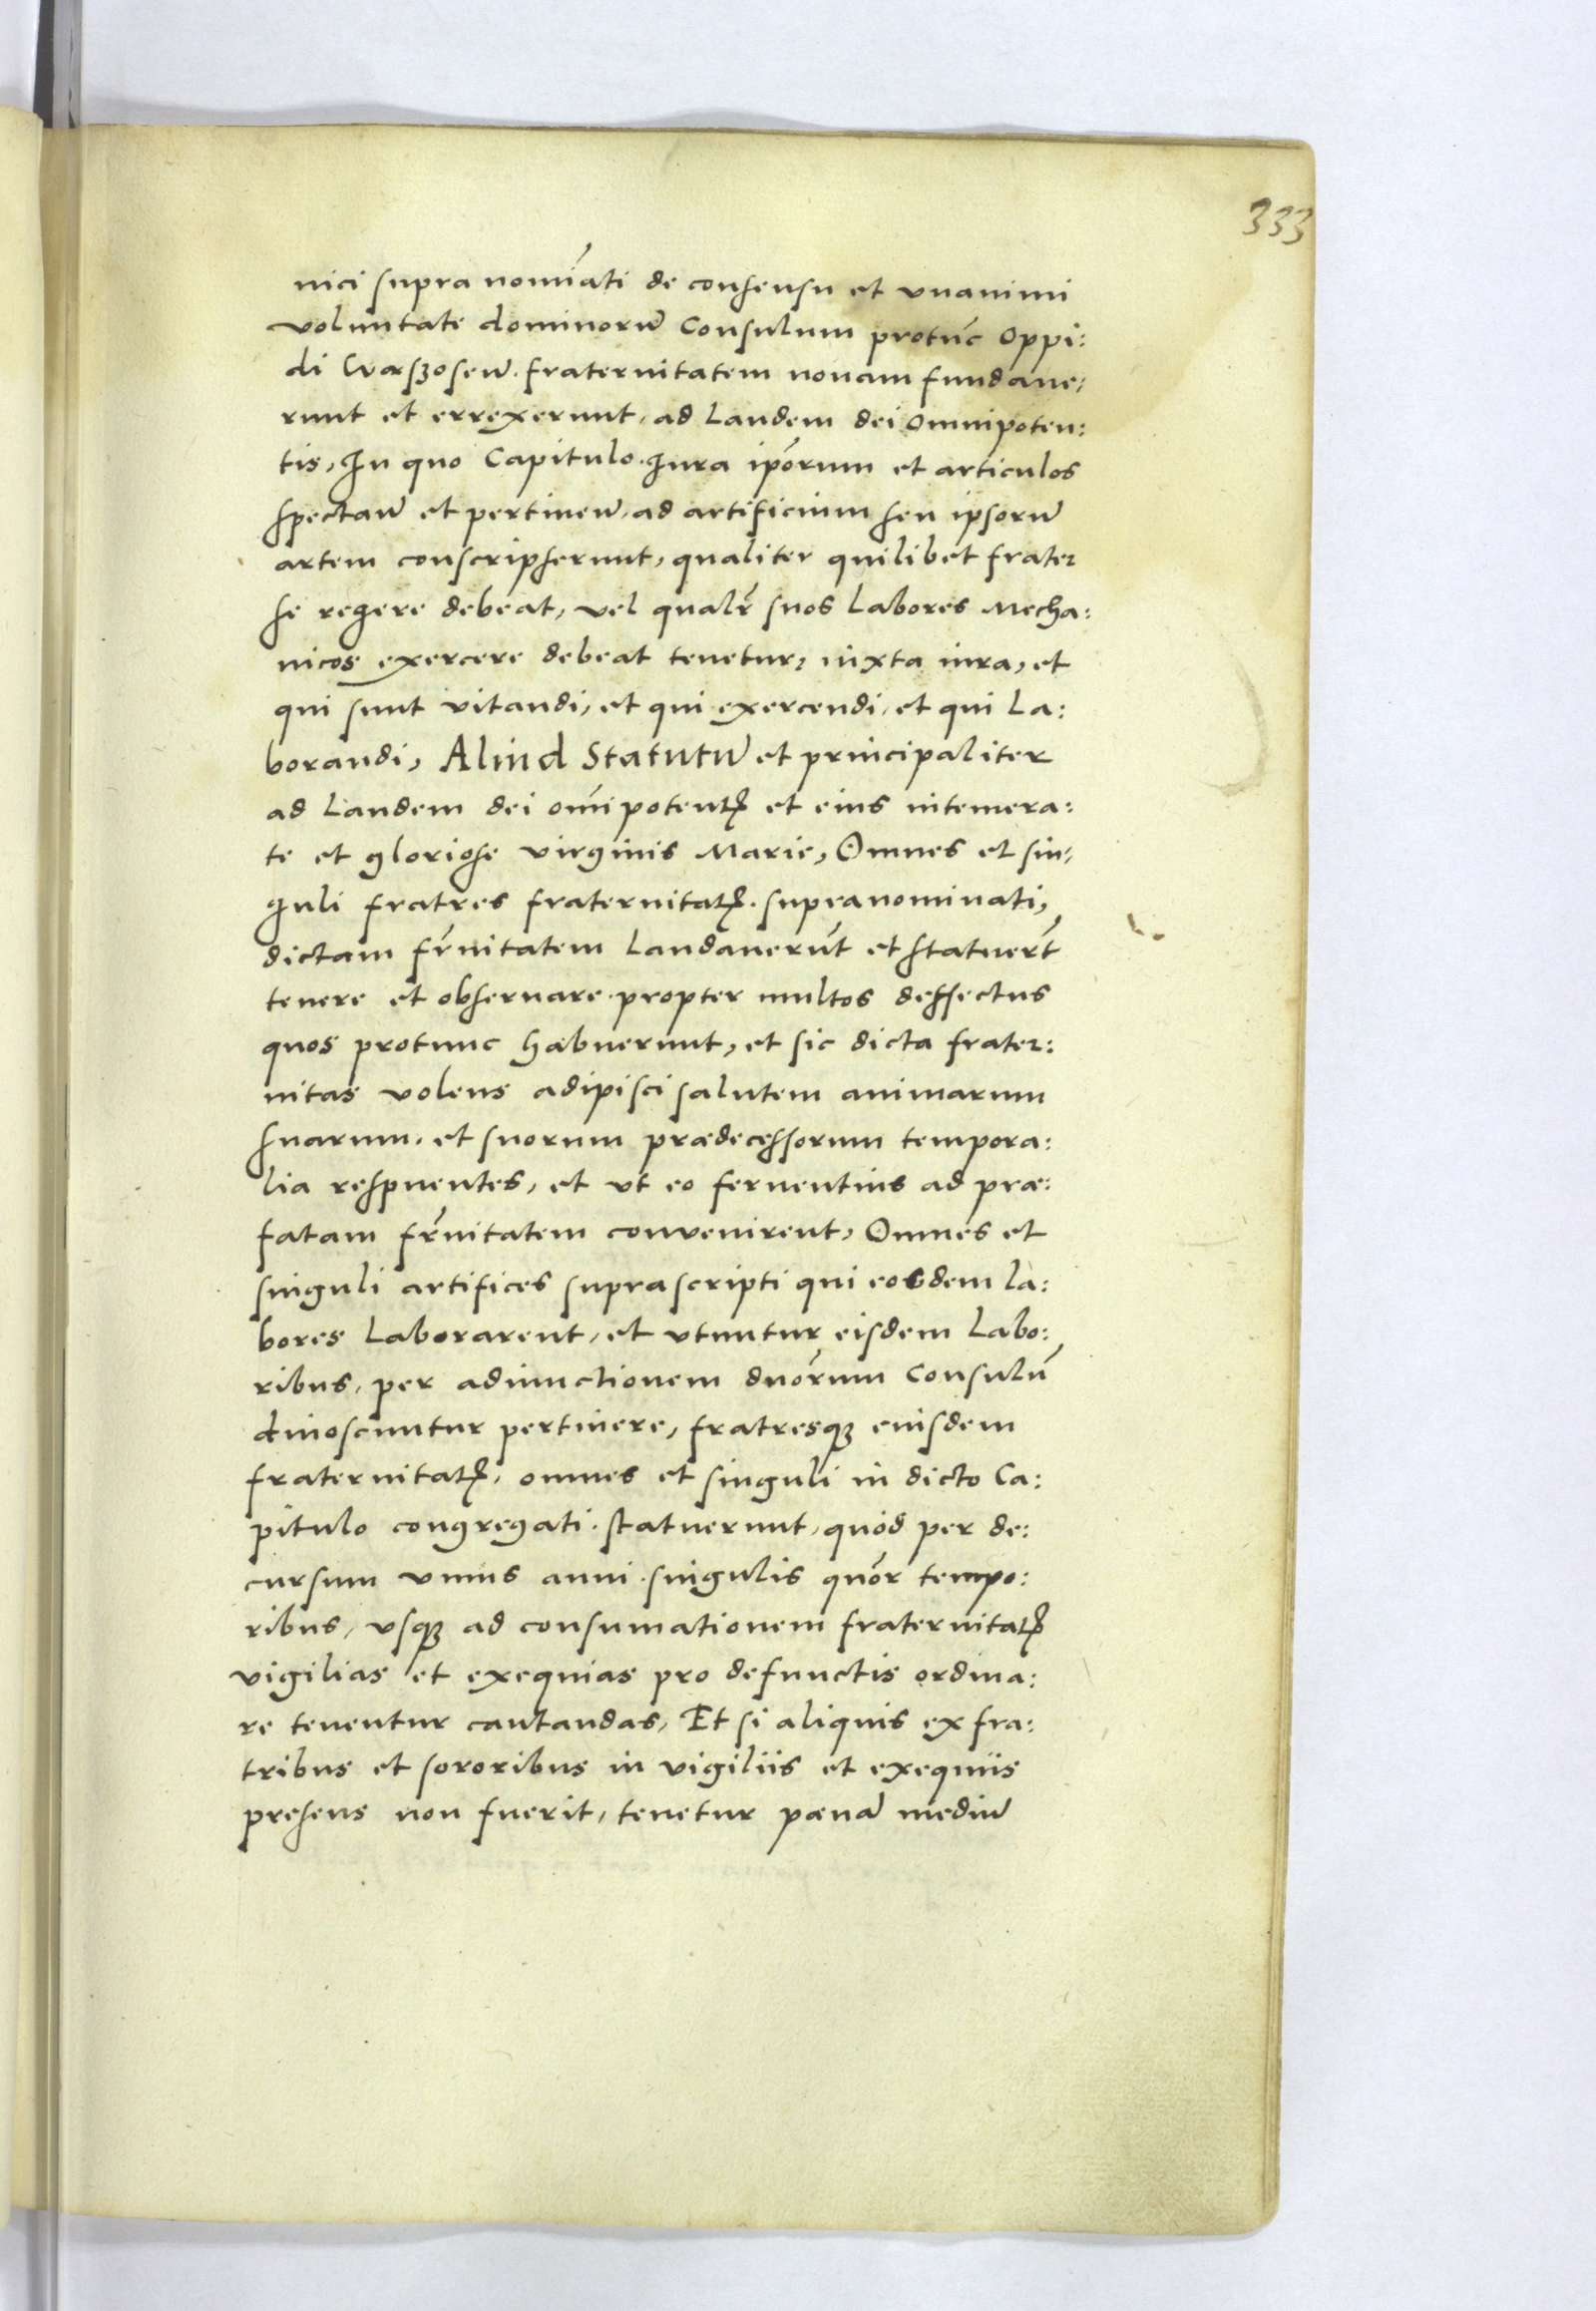 333
nici supra nomi͂ati de consensu et vnanimi
voluntate dominoru͂ Consulum protu͂c Oppi:
di Warszoseu͂. fraternitatem nouam fundaue:
runt et errexerunt, ad Laudem dei Omnipoten:
tis, In quo Capitulo. Iura ip͂orum et articulos
spectan͂ et pertinen͂, ad artificium seu ipsoru͂
artem conscripserunt, qualiter quilibet frater
se regere debeat, vel qualr͂ suos Labores Mecha:
nicos exercere debeat tenetur, iuxta iura, et
qui sunt vitandi, et qui exercendi, et qui La:
borandi, Aliud Statutu͂ et principaliter
ad Laudem dei om͂ipotentꝭ et eius intemera:
te et gloriose virginis Marie, Omnes et sin,
guli fratres fraternitatꝭ. supranominati,
dictam fr͂nitatem Laudaueru͂t et statuer͂t
tenere et obseruare. propter multos deffectus
quos protunc habuerunt, et sic dicta frater:
nitas volens adipisci salutem animarum
suarum. et suorum prædecessorum tempora:
lia respuentes, et vt eo feruentius ad præ:
fatam fr͂nitatem convenirent, Omnes et
singuli artifices suprascripti qui eosdem la:
bores Laborarent, et vtuntur eisdem Labo:
ribus, per adiunctionem duo͂rum Consulu͂
dinoscuntur pertinere, fratresqꝫ eiusdem
fraternitatꝭ, omnes et singuli in dicto Ca:
pitulo congregati. statuerunt, quod per de:
cursum vnius anni. singulis quo͂r tempo:
ribus, vsqꝫ ad consumationem fraternitatꝭ
vigilias et exequias pro defunctis ordina:
re tenentur cantandas, Et si aliquis ex fra:
tribus et sororibus in vigiliis et exequiis
presens non fuerit, tenetur pœna͂ mediu͂